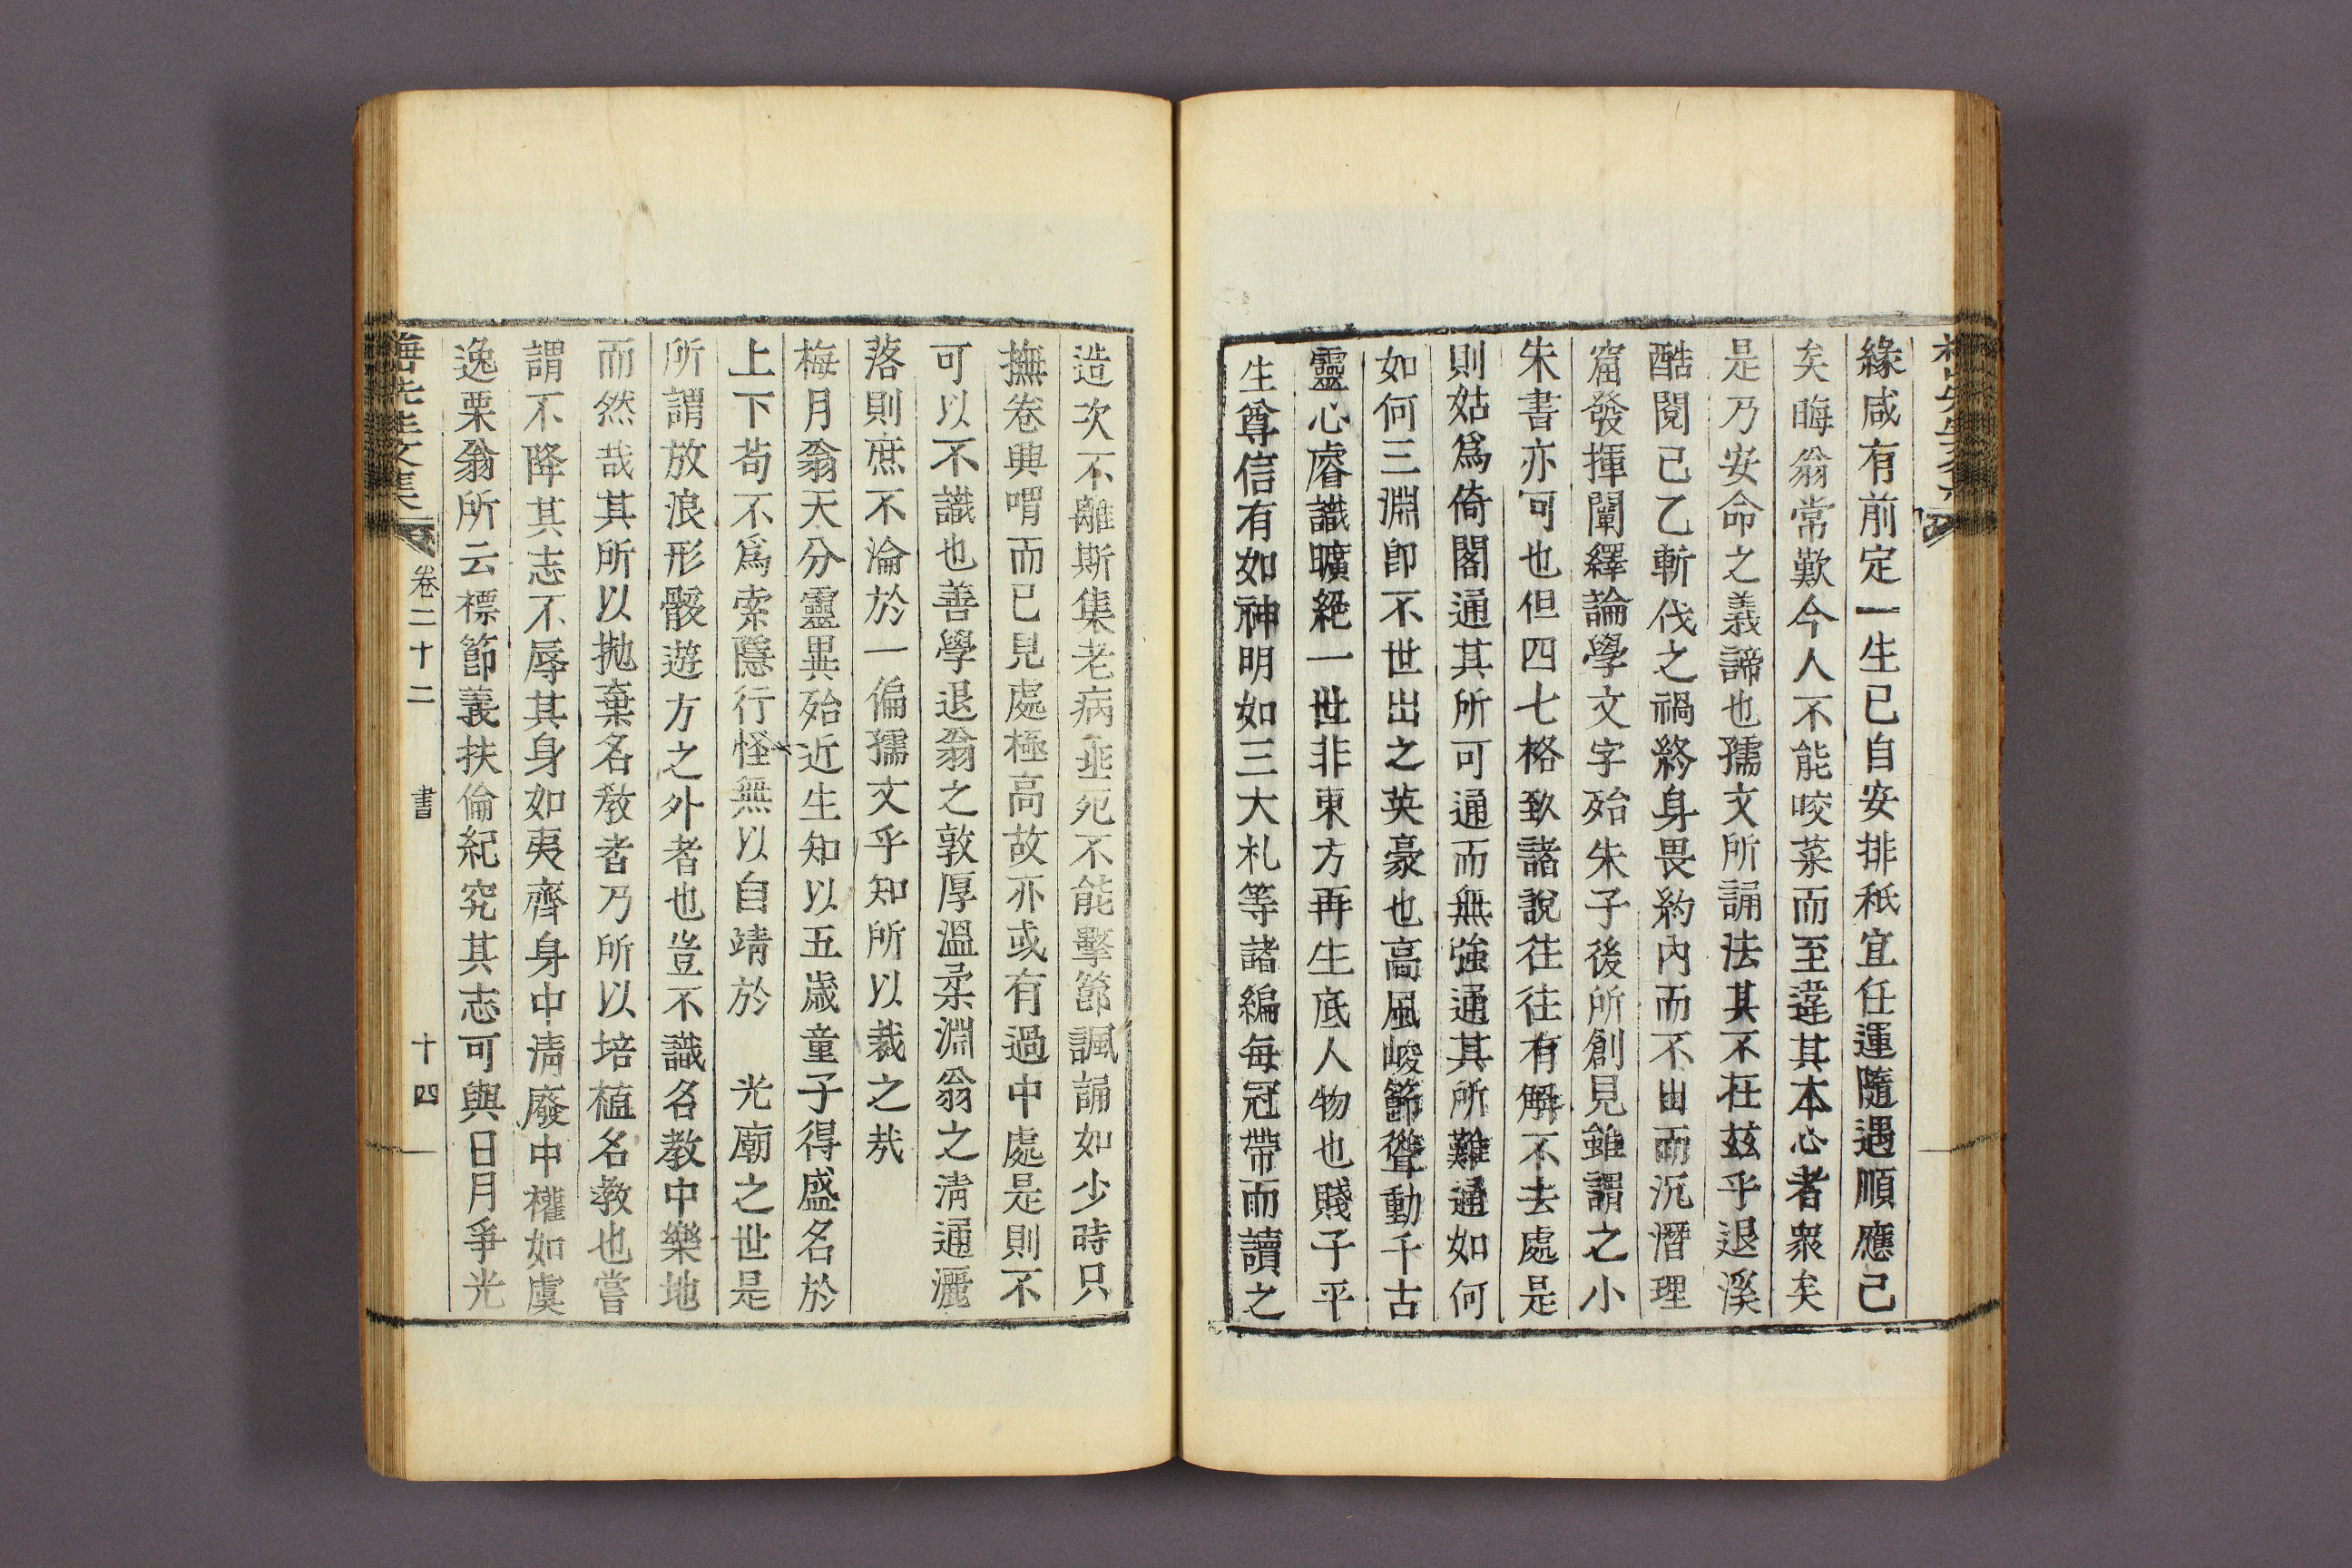 緣咸有前定一生已自安排秪宜任運隨遇順應已
矣晦翁常歎今人不能咬菜而至違其本心者衆矣
是乃安命之義諦也孺文所誦法其不在玆乎退溪
酷閱己乙斬伐之禍終身畏約內而不出而沉潛理
窟發揮闡繹論學文字殆朱子後所創見雖謂之小
朱書亦可也但四七格致諸說往往有解不去處是
則姑爲倚閣通其所可通而無強通其所難通如何
如何三淵卽不世出之英豪也高風峻節聳動千古
靈心睿識曠絶一世非東方再生底人物也賤子平
生尊信有如神明如三大札等諸編每冠帶而讀之
造次不離斯集老病垂死不能擊節諷誦如少時只
撫卷興喟而已見處極高故亦或有過中處是則不
可以不識也善學退翁之敦厚溫柔淵翁之淸通灑
落則庶不淪於一偏孺文乎知所以裁之哉
梅月翁天分靈異殆近生知以五歲童子得盛名於
上下苟不爲索隱行怪無以自靖於　光廟之世是
所謂放浪形骸遊方之外者也豈不識名敎中樂地
而然哉其所以拋棄名敎者乃所以培植名敎也嘗
謂不降其志不辱其身如夷齊身中淸廢中權如虞
逸栗翁所云標節義扶倫紀究其志可與日月爭光
先生文集
卷二十二
書
十四